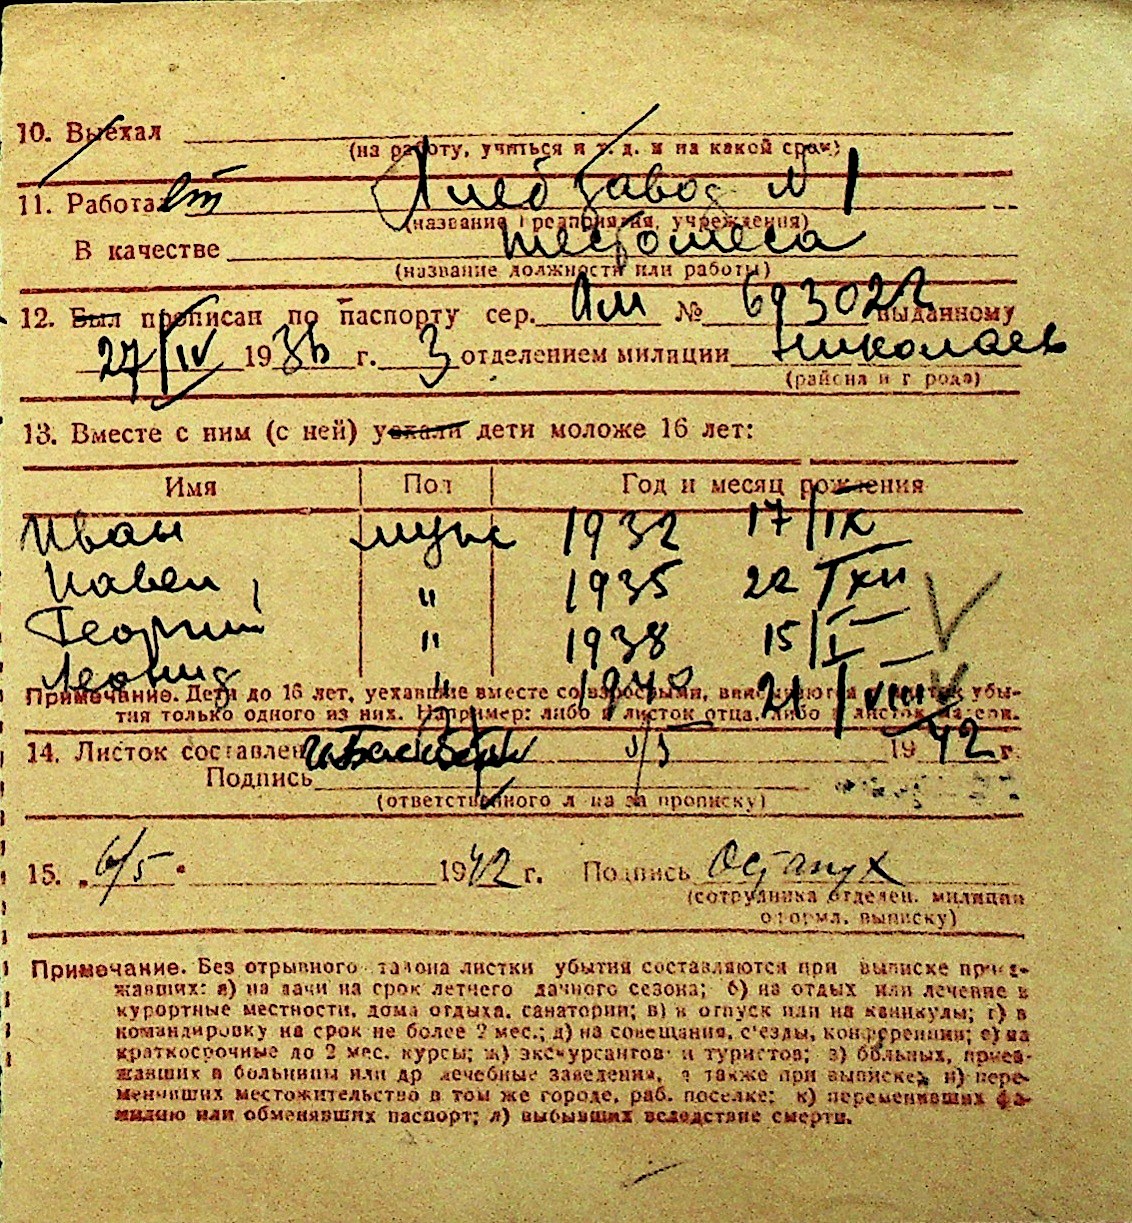 10. Выехал
(на работу, учиться и т. д. и на какой срок)
11. Работает Хлебзавод № 1
(название предприятия, учреждения)
В качестве тестомеса
(название должности или работы)
12. Был прописан по паспорту сер. АМ № 693022 выданному
27/IV 1936 г. 3 отделением милиции Николаев
(района и города)
13. Вместе с ним (с ней) уехали дети моложе 16 лет:
Имя Пол Год и месяц рождения
Иван муж 1932 17/IX
Павел " 1935 22/XII
Георгий " 1938 15/I
Леонид " 1940 21/VIII
Примечание. Дети до 16 лет, уехавшие вместе со взрослыми, вписываются в листок убы-
тия только одного из них. Например: либо в листок отца, либо в листок матери.
14. Листок составлен 5/5 1942 г.
Подпись
(ответственного лица за прописку)
15. „6/5" 1942 г. Подпись Остапух
(сотрудника отделен. милиции
оформл. выписку)
Примечание. Без отрывного талона листки убытия составляются при выписке приез-
жавших: а) на дачи на срок летнего дачного сезона; б) на отдых или лечение в
курортные местности, дома отдыха, санатории; в) в отпуск или на каникулы; г) в
командировку на срок не более 2 мес.; д) на совещания, съезды, конференции; е) на
краткосрочные до 2 мес. курсы; ж) экскурсантов и туристов; з) больных, приез-
жавших в больницы или др лечебные заведения, а также при выписке; и) пере-
менивших местожительство в том же городе, раб. поселке; к) переменивших фа-
милию или обменявших паспорт; л) выбывших вследствие смерти.